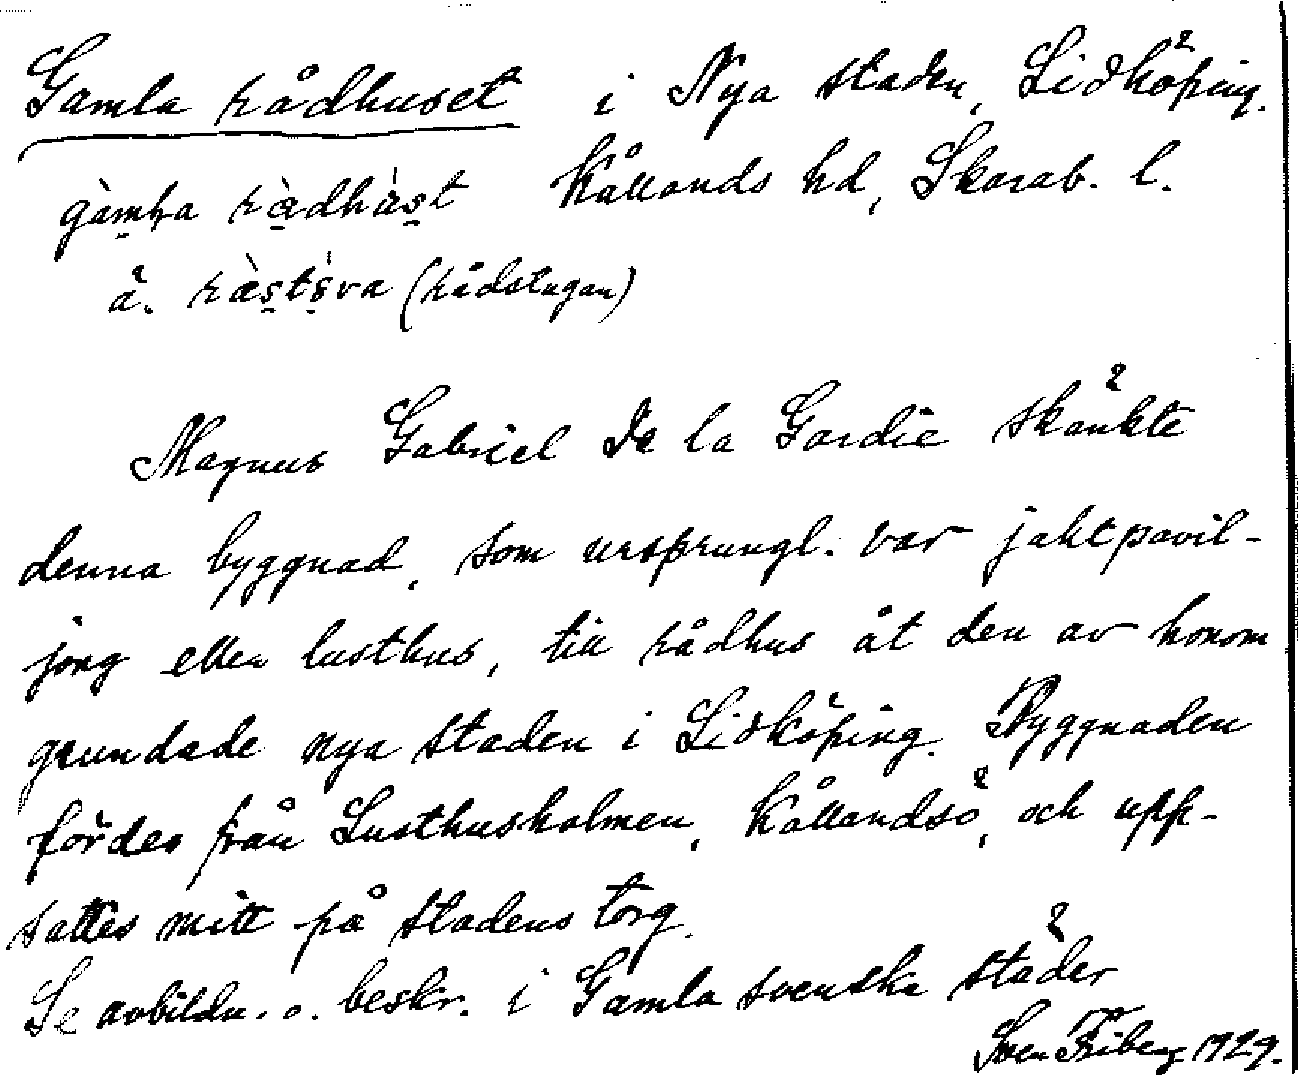 Gamla rådhuset i Nya staden, Lidköping.
Kållands hd, Skarab. l.
ä. (rådstugan)
Magnus Gabriel De la Gardie skänkte
denna byggnad, som ursprungl. var jaktpavil-
jong eller lusthus, till rådhus åt den av honom
grundade nya staden i Lidköping. Byggnaden
fördes från Lusthusholmen, Kållandsö, och upp-
sattes mitt på stadens torg.
Se avbildn. o. beskr. i Gamla svenska städer
Sven Friberg 1929.